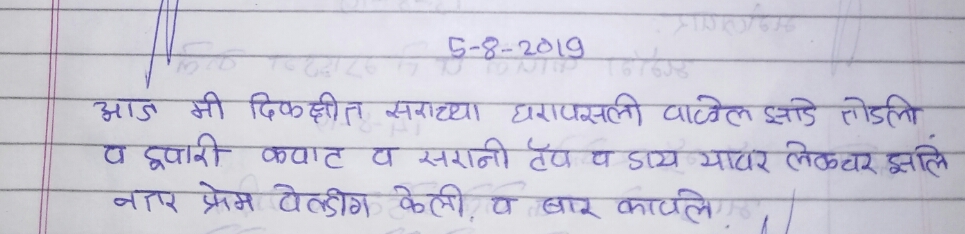 5-8-2019
आज मी दिकक्षीत सराच्या घरापसली वाळेल झाडे तोडली
व दूपारी कपाट व सरानी टॅप व डाय यावर लेकचर झालि
नतर फ्रेम वेल्डीग केली. व बार कापले.